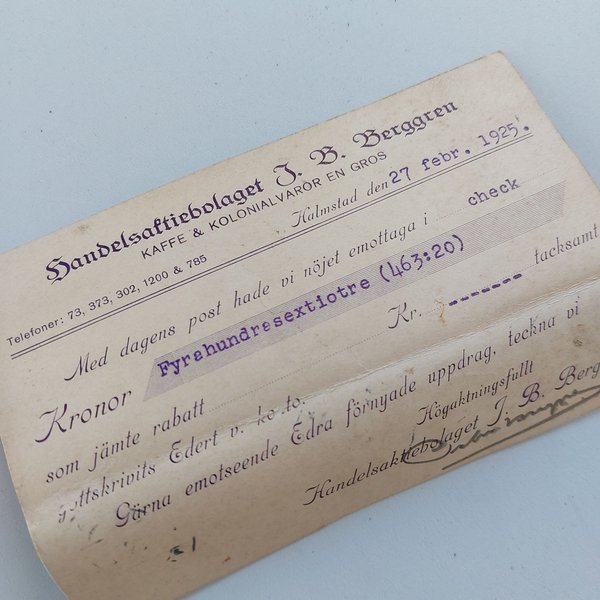 Handelsaktiebolaget J. B. Berggren
KAFFE & KOLONIALVAROR EN GROS
Telefoner: 73, 373, 302, 1200 & 785
Halmstad den 27 febr. 1925.
Med dagens post hade vi nöjet emottaga i check
Kronor Fyrahundrasextiotre (463:20)
som jämte rabatt Kr. ------- tacksamt
gottskrivits Edert v. ko to.
Gärna emotseende Edra förnyade uppdrag, teckna vi
Högaktningsfullt
Handelsaktiebolaget J. B. Berg